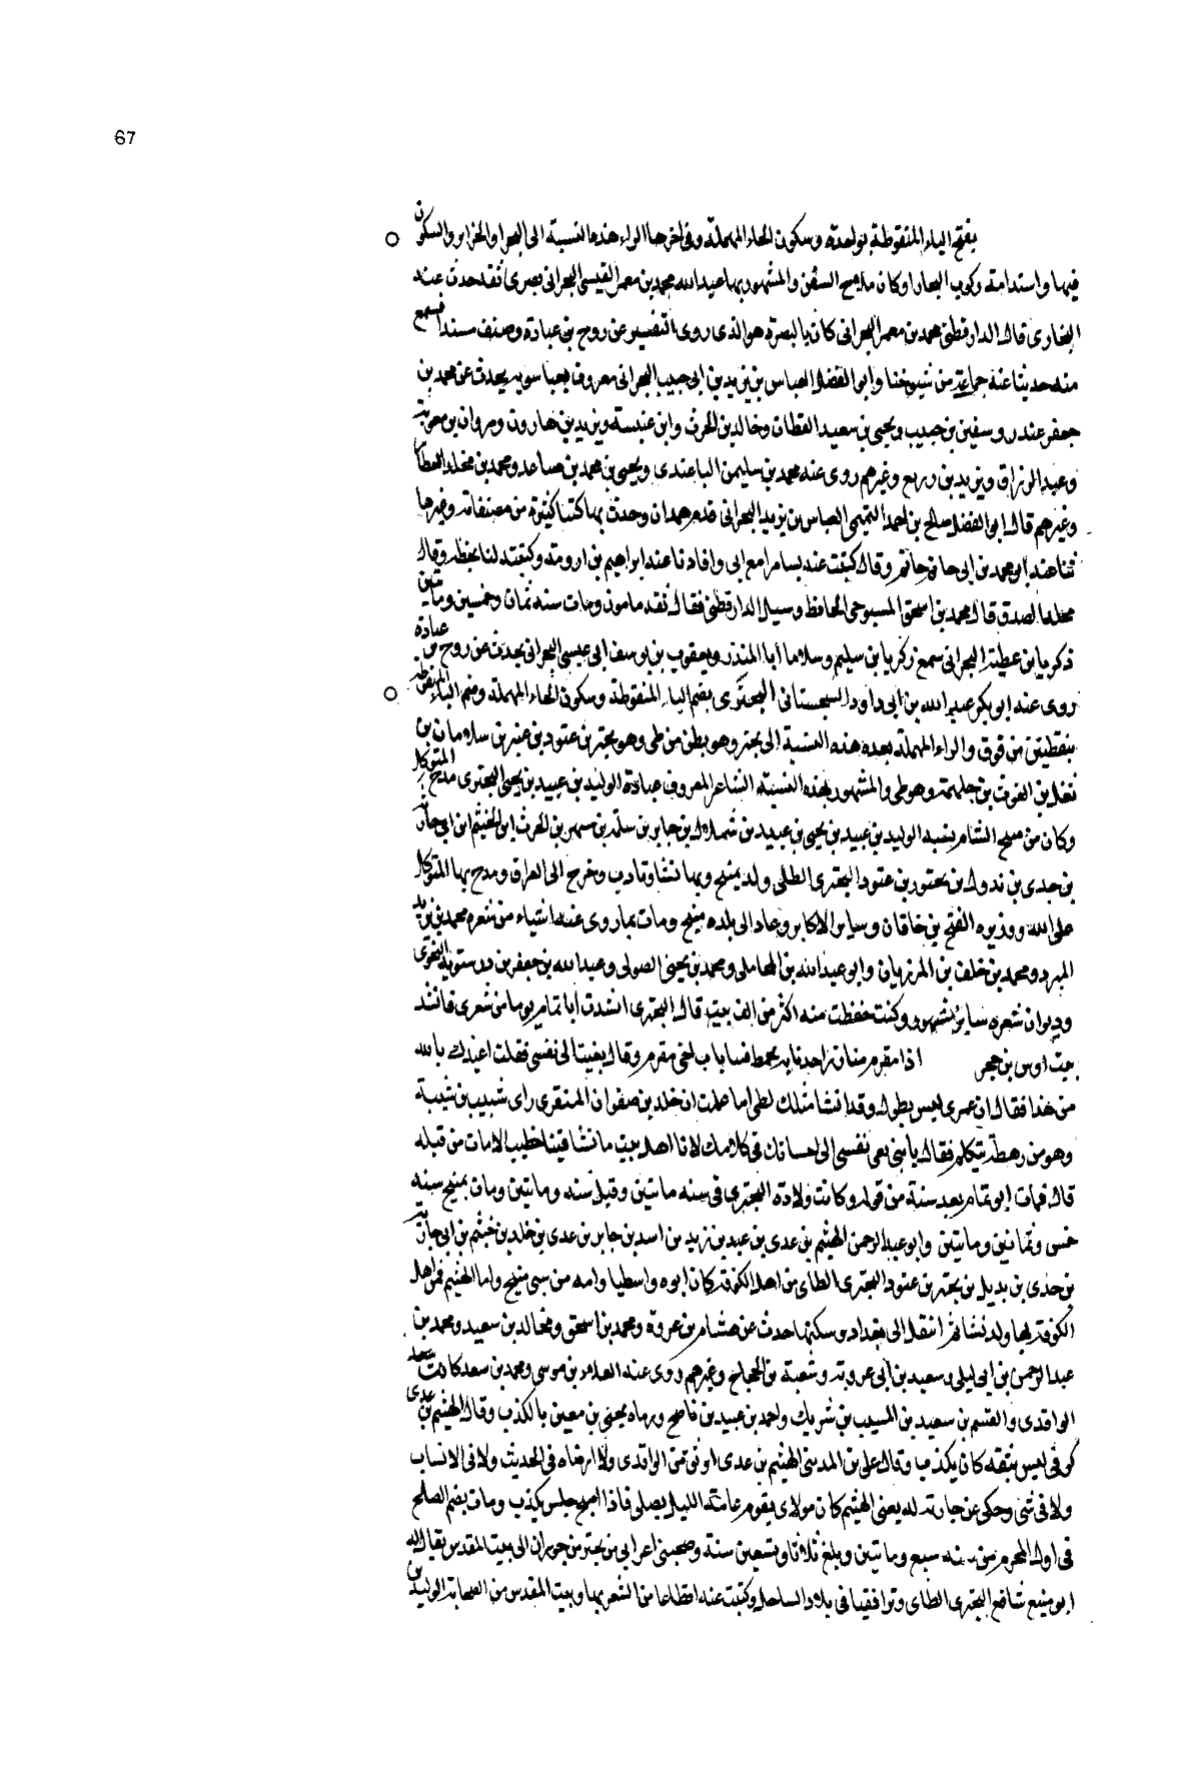 67
بفتح الباء المنقوطة بواحدة وسكون الحاء المهملة وفي اخرها الراء هذه النسبة الى البحر او الجزاير والسكون
فيها واستدامة ركوب البحار او كان ملاح السفن والمشهور بها عبد الله محمد بن معمر القيسى البحرانى بصرى ثقة حدث عنه
البخارى قال الدارقطنى محمد بن معمر البحرانى كان بالبصرة هو الذى روى التفسير عن روح بن عبادة وصنف مسندا فسمع
منه حديثا عنه جماعة من شيوخنا وابو الفضل العباس بن يزيد بن ابى حبيب البحرانى معروف بعباسويه يحدث عن محمد بن
جعفر غندر وسفين بن حبيب ويحيى بن سعيد القطان وخالد بن الحرث وابن عنبسة ويزيد بن هارون ومروان بن معوية
وعبد الرزاق ويزيد بن زريع وغيرهم روى عنه محمد بن سليمن الباغندى ويحيى بن محمد بن صاعد ومحمد بن مخلد العطار
وغيرهم قال ابو الفضل صالح بن احمد التميمى العباس بن يزيد البحرانى قدم همدان وحدث بها كتبا كثيرة من مصنفاته وغيرها
ثنا عنه ابو محمد بن ابى حاتم وقال كتبت عنه بسامرا مع ابى وافادنا عنه ابراهيم بن اورمة وكتبته لنا بخطه وقال
محله الصدق قال محمد بن اسحق المسوحى الحافظ وسيل الدارقطنى فقال ثقة مامون ومات سنة ثمان وخمسين ومايتين
زكريا بن عطية البحرانى سمع زكريا بن سليم وسلاما ابا المنذر ويعقوب بن يوسف ابى عيسى البحرانى يحدث عن روح بن عبادة
روى عنه ابو بكر عبد الله بن ابى داود السجستانى البحترى بضم الباء المنقوطة وسكون الحاء المهملة وضم التاء المنقوطة
بنقطتين من فوق والراء المهملة بعده هذه النسبة الى بحتر وهو بطن من طى وهو بحتر بن عتود بن عنيز بن سلامان بن
ثعل بن الغوث بن جلهمة وهو طى والمشهور بهذه النسبة الشاعر المعروف عبادة الوليد بن عبيد بن يحيى البحترى مدح المتوكل
وكان من منبج الشام نسبه الوليد بن عبيد بن يحيى بن عبيد بن شملال بن جابر بن سلمة بن مسهر بن الحرث بن الخيثم ابن ابى حارثة
بن جدى بن تدول بن بحتور بن عتود البحترى الطائى ولد بمنبج وبها نشا وتادب وخرج الى العراق ومدح بها المتوكل
على الله ووزيره الفتح بن خاقان وساير الاكابر وعاد الى بلده منبج ومات بها روى عنه اشياء من شعره محمد بن يزيد
المبرد ومحمد بن خلف بن المرزبان وابو عبد الله بن المحاملى ومحمد بن يحيى الصولى وعبد الله بن جعفر بن درستويه النحوى
وديوان شعره ساير مشهور وكنت حفظت منه اكثر من الف بيت قال البحترى انشدت ابا تمام يوما من شعرى فانشد
بيت اوس بن حجر اذا مقرم منا ذرا حد نابه تخمط فينا ناب اخر مقرم وقال نعيت الى نفسى فقلت اعيذك بالله
من هذا فقال ان عمرى ليس بطول وقد نشا مثلك لطى اما علمت ان خلد بن صفوان المنقرى راى شبيب بن شيبة
وهو من رهطه يتكلم فقال يا بنى نعى نفسى الى احسانك فى كلامك لانا اهل بيت ما نشا فينا خطيب الا مات من قبله
قال فمات ابو تمام بعد سنة من قوله وكانت ولادة البحترى فى سنه مايتين وقيل سنه ومايتين ومات بمنبج سنه
خمس وثمانين ومايتين وابو عبد الرحمن الهيثم بن عدى بن عبد بن زيد بن اسد بن جابر بن عدى بن خلد بن خيثم بن ابى حارثة
بن جدى بن بديل بن بحتر بن عتود البحترى الطاى من اهل الكوفة كان ابوه واسطيا وامه من سبى منبج واما الهيثم فمن اهل
الكوفة بها ولد نشا ثم انتقل الى بغداد وسكنها حدث عن هشام بن عروة ومحمد بن اسحق ومجالد بن سعيد ومحمد بن
عبد الرحمن بن ابى ليلى وسعيد بن ابى عروبة وشعبة بن الحجاج وغيرهم روى عنه العلاء بن موسى ومحمد بن سعد كاتب
الواقدى والقسم بن سعيد بن المسيب بن شريك واحمد بن عبيد بن ناصح ورماه يحيى بن معين بالكذب وقال الهيثم بن عدى
كوفى ليس بثقه كان يكذب وقال على بن المدينى الهيثم بن عدى اوثق من الواقدى ولا ارضاه فى الحديث ولا فى الانساب
ولا فى شى وحكى عن جارية له يعنى الهيثم كان مولاى يقوم عامة الليل يصلى فاذا اصبح جلس يكذب ومات بفم الصلح
فى اول المحرم من سنه سبع ومايتين وبلغ ثلاثا وتسعين سنة وصحبنى اعرابى من بحتر من حوران الى بيت المقدس يقال له
ابو منيع شافع البحترى الطاى وترافقنا فى بلاد الساحل وكتبت عنه اقطاعا من الشعر بها وببيت المقدس من الصحابة الوليد بن